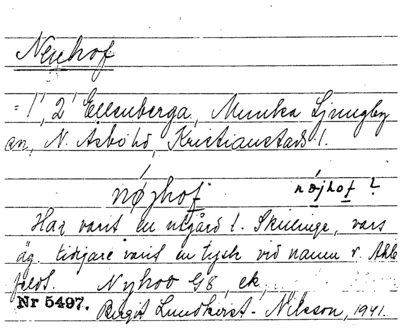 Neuhof
= 1', 2' Ellenberga, Munka Ljungby
sn, N. Åsbo hd, Kristianstads l.
nøjhof nøjhof ?
Har varit en utgård t. Skillinge, vars
äg. tidigare varit en tysk vid namn v. Ahle
feldt. Nyhov GS, ek,
Nr 5497. Birgit Lundkvist-Nilsson, 1941.